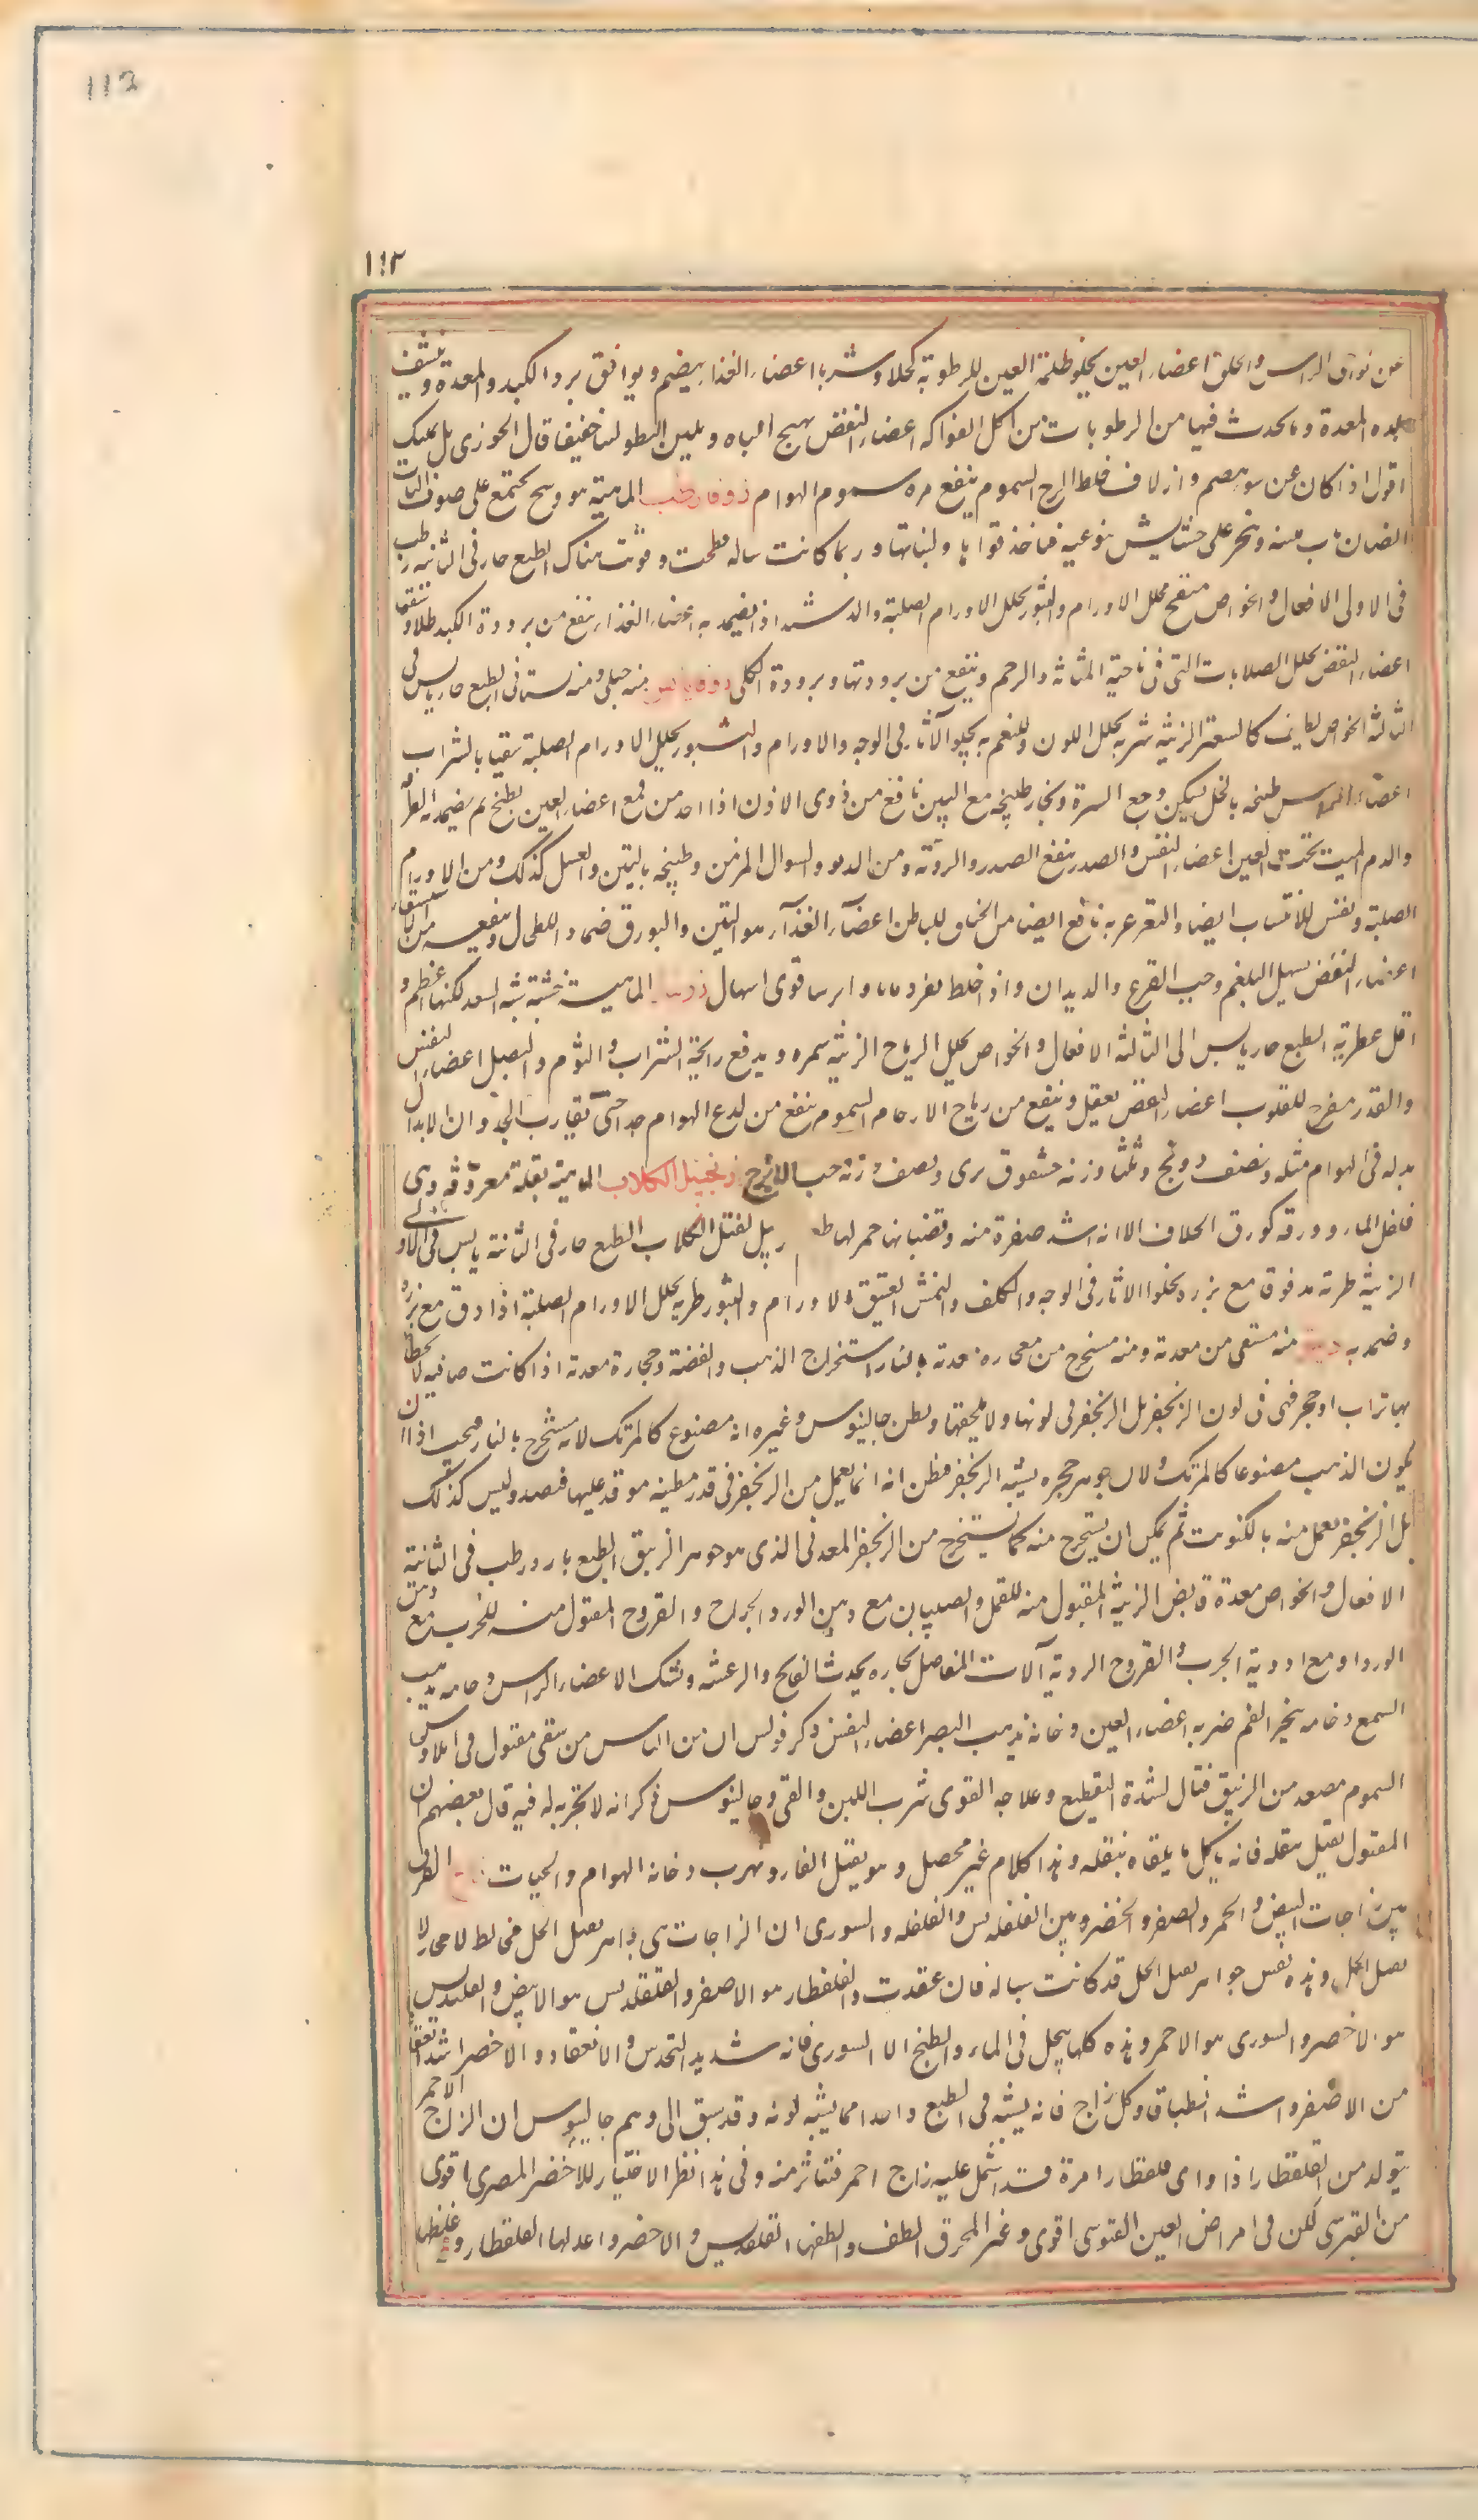 112
١١٢
عن نواحى الراس والحلق اعضاء العين يجلو ظلمة العين للرطوبة كحلا وشربا اعضاء الغذا يهضم ويوافق برد الكبد والمعدة وينشف
بله المعدة وما يحدث فيها من الرطوبات من اكل الفواكه اعضاء النفض يهيج الباه ويلين البطن لينا خفيفا قال الخوزى بل يمسك
اقول اذا كان عن سو هضم وازلاق خلط لزج السموم ينفع من سموم الهوام زوفا رطب الماهية هو وسخ يجتمع على صوف اليات
الضان منه وينجر على حشايش يتوعيه فياخذ قواها ولبناتها وربما كانت ساله فطبخت وقومت هناك الطبع حار فى الثانية رطب
فى الاولى الافعال والخواص منضج محلل الاورام والبثور يحلل الاورام الصلبة والدشبد اذا تضمد به اعضاء الغذاء ينفع من برودة الكبد طلاء وسقيا
اعضاء النفض يحلل الصلابات التى فى ناحية المثانه والرحم وينفع من برودتها وبرودة الكلى زوفا يابس منه جبلى ومنه بستانى الطبع حار يابس فى
الثالثة الخواص لطيف كالسعتر الزينة شربه يحلل اللون والتغمر به يجلو الآثار فى الوجه والاورام والبثور يحلل الاورام الصلبة سقيا بالشراب
اعضاء الراس طبخه بالخل يسكن وجع السن وبخار طبخه مع التين نافع من دوى الاذن اذا اخذ من قمع اعضاء العين يطبخ ثم يضمد به الطرفه
والدم الميت تحت العين اعضاء النفس والصدر ينفع الصدر والرئة ومن الربو والسعال المزمن وطبيخه بالتين والعسل كذلك ومن الاورام
الصلبة ونفس الانتصاب ايضا والتغرغر به نافع ايضا من الخناق الباطن اعضآء الغذآء هو والتين والبورق ضماد للطحال وينفعه من الاستسقاء
اعضاء النفض يسهل البلغم وحب القرع والديدان واذا خلط بقردمانا وايرسا قوى اسهاله زرنباد الماهية خشبة تشبه السعد لكنها اعظم و
اقل عطرية الطبع حار يابس الى الثالثة الافعال والخواص يحلل الرياح الزينة يسمن ويدفع رايحة الشراب والثوم والبصل اعضاء النفس
والصدر مفرح للقلوب اعضاء النفض يعقل وينفع من رياح الارحام السموم ينفع من لدغ الهوام جدا حتى يقارب الجدوار الابدال
بدله فى الهوام مثله ونصف درونج وثلثا وزنه طرخشقوق برى ونصف وزنه حب الاترج زنجبيل الكلاب الماهية بقلة معروفه وهى
فلفل الماء وورقه كورق الخلاف الا انه اشد صفرة منه وقضبانها حمر لها طعم زنجبيل يقتل الكلاب الطبع حار فى الثانية يابس فى الاولى
الزينة طريه مدقوق مع بزره يجلو الاثار فى الوجه والكلف والنمش العتيق الاورام والبثور طريه يحلل الاورام الصلبة اذا دق مع بزره
وضمد به زيبق منه مستقى من معدنه ومنه مستخرج من حجارة معدنه بالنار استخراج الذهب والفضة وحجارة معدنه اذا كانت صافيه لا يخالطها
تراب او حجر فهى فى لون الزنجفر بل الزنجفر فى لونها ولا يلحقها وظن جالينوس وغيره انه مصنوع كالمرتك لانه مستخرج بالنار فيجب اذا ان
يكون الذهب مصنوعا كالمرتك ولان جوهر حجره يشبه الزنجفر فظن انه انما يعمل من الزنجفر فى قدر مطينه موقد عليها فيصعد وليس كذلك
بل الزنجفر يعمل منه بالكبريت ثم يمكن ان يستخرج منه كما يستخرج من الزنجفر المعدنى الذى هو جوهر الزيبق الطبع بارد رطب فى الثانية
الافعال والخواص معدنه قابض الزينة المقتول منه للقمل والصيبان مع دهن الورد الجراح والقروح المقتول منه للجرب مع دهن
الورد او مع ادوية الجرب والقروح الردية آلات المفاصل بخاره يحدث الفالج والرعشه وتشنك الاعضاء الراس دخانه يذهب
السمع دخانه يبخر الفم ضربه اعضاء العين دخانه يذهب البصر اعضاء النفض ذكر فولس ان من الناس من سقى مقتوله فى ايلاوس
السموم مصعد من الزيبق قتال لشدة التقطيع وعلاجه القوى شرب اللبن والقى وجالينوس ذكر انه لا تجربه له فيه قال بعضهم ان
المقتول يقتل بثقله فانه ياكل ما يلقاه بثقله وهذا كلام غير محصل وهو يقتل الفار ويهرب دخانه الهوام والحيات زاج الفرق
بين الزاجات البيض والحمر والصفر والخضر وبين القلقديس والقلقند والسورى ان الزاجات هى جواهر تقبل الحل مخالطة لاحجار لا
تقبل الحل وهذه نفس جواهر تقبل الحل قد كانت سياله فان عقدت والقلقطار هو الاصفر والقلقديس هو الابيض والقلقندس
هو الاخضر والسورى هو الاحمر وهذه كلها ينحل فى الماء والطبخ الا السورى فانه شديد التجسد والانعقاد والاخضر اشد انعقادا
من الاصفر واشد انطباقا وكل زاج فانه يشبه فى الطبع واحدا مما يشبه لونه وقد سبق الى وهم جالينوس ان الزاج الاحمر
يتولد من القلقطار اذا راى قلقطارا مرة قد اشتمل عليه زاج احمر فتناثر منه وفى هذا نظر الاختيار للاخضر المصرى اقوى
من القبرسى لكن فى امراض العين القبرسى اقوى وغير المحرق الطف والطفها القلقديس والاخضر واعدلها القلقطار واغلظها